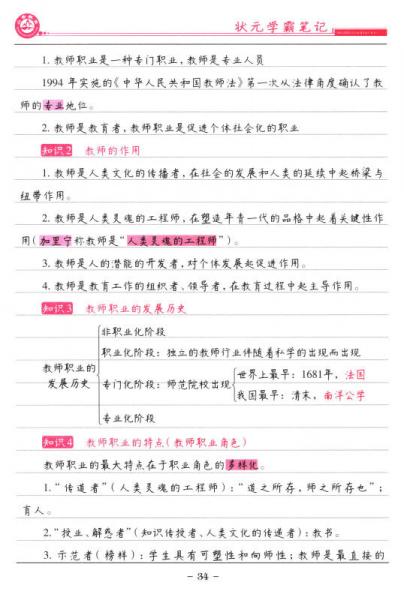 状元学霸笔记
1. 教师职业是一种专门职业,教师是专业人员
1994 年实施的《中华人民共和国教师法》第一次从法律角度确认了教
师的专业地位。
2. 教师是教育者,教师职业是促进个体社会化的职业
知识2 教师的作用
1. 教师是人类文化的传播者,在社会的发展和人类的延续中起桥梁与
纽带作用。
2. 教师是人类灵魂的工程师,在塑造年青一代的品格中起着关键性作
用(加里宁称教师是“人类灵魂的工程师”)。
3. 教师是人的潜能的开发者,对个体发展起促进作用。
4. 教师是教育工作的组织者、领导者,在教育过程中起主导作用。
知识3 教师职业的发展历史
教师职业的
发展历史
非职业化阶段
职业化阶段:独立的教师行业伴随着私学的出现而出现
专门化阶段:师范院校出现
世界上最早:1681年,法国
我国最早:清末,南洋公学
专业化阶段
知识4 教师职业的特点(教师职业角色)
教师职业的最大特点在于职业角色的多样化。
1.“传道者”(人类灵魂的工程师):“道之所存,师之所存也”;
育人。
2.“授业、解惑者”(知识传授者、人类文化的传递者):教书。
3. 示范者(榜样):学生具有可塑性和向师性;教师是最直接的
- 34 -